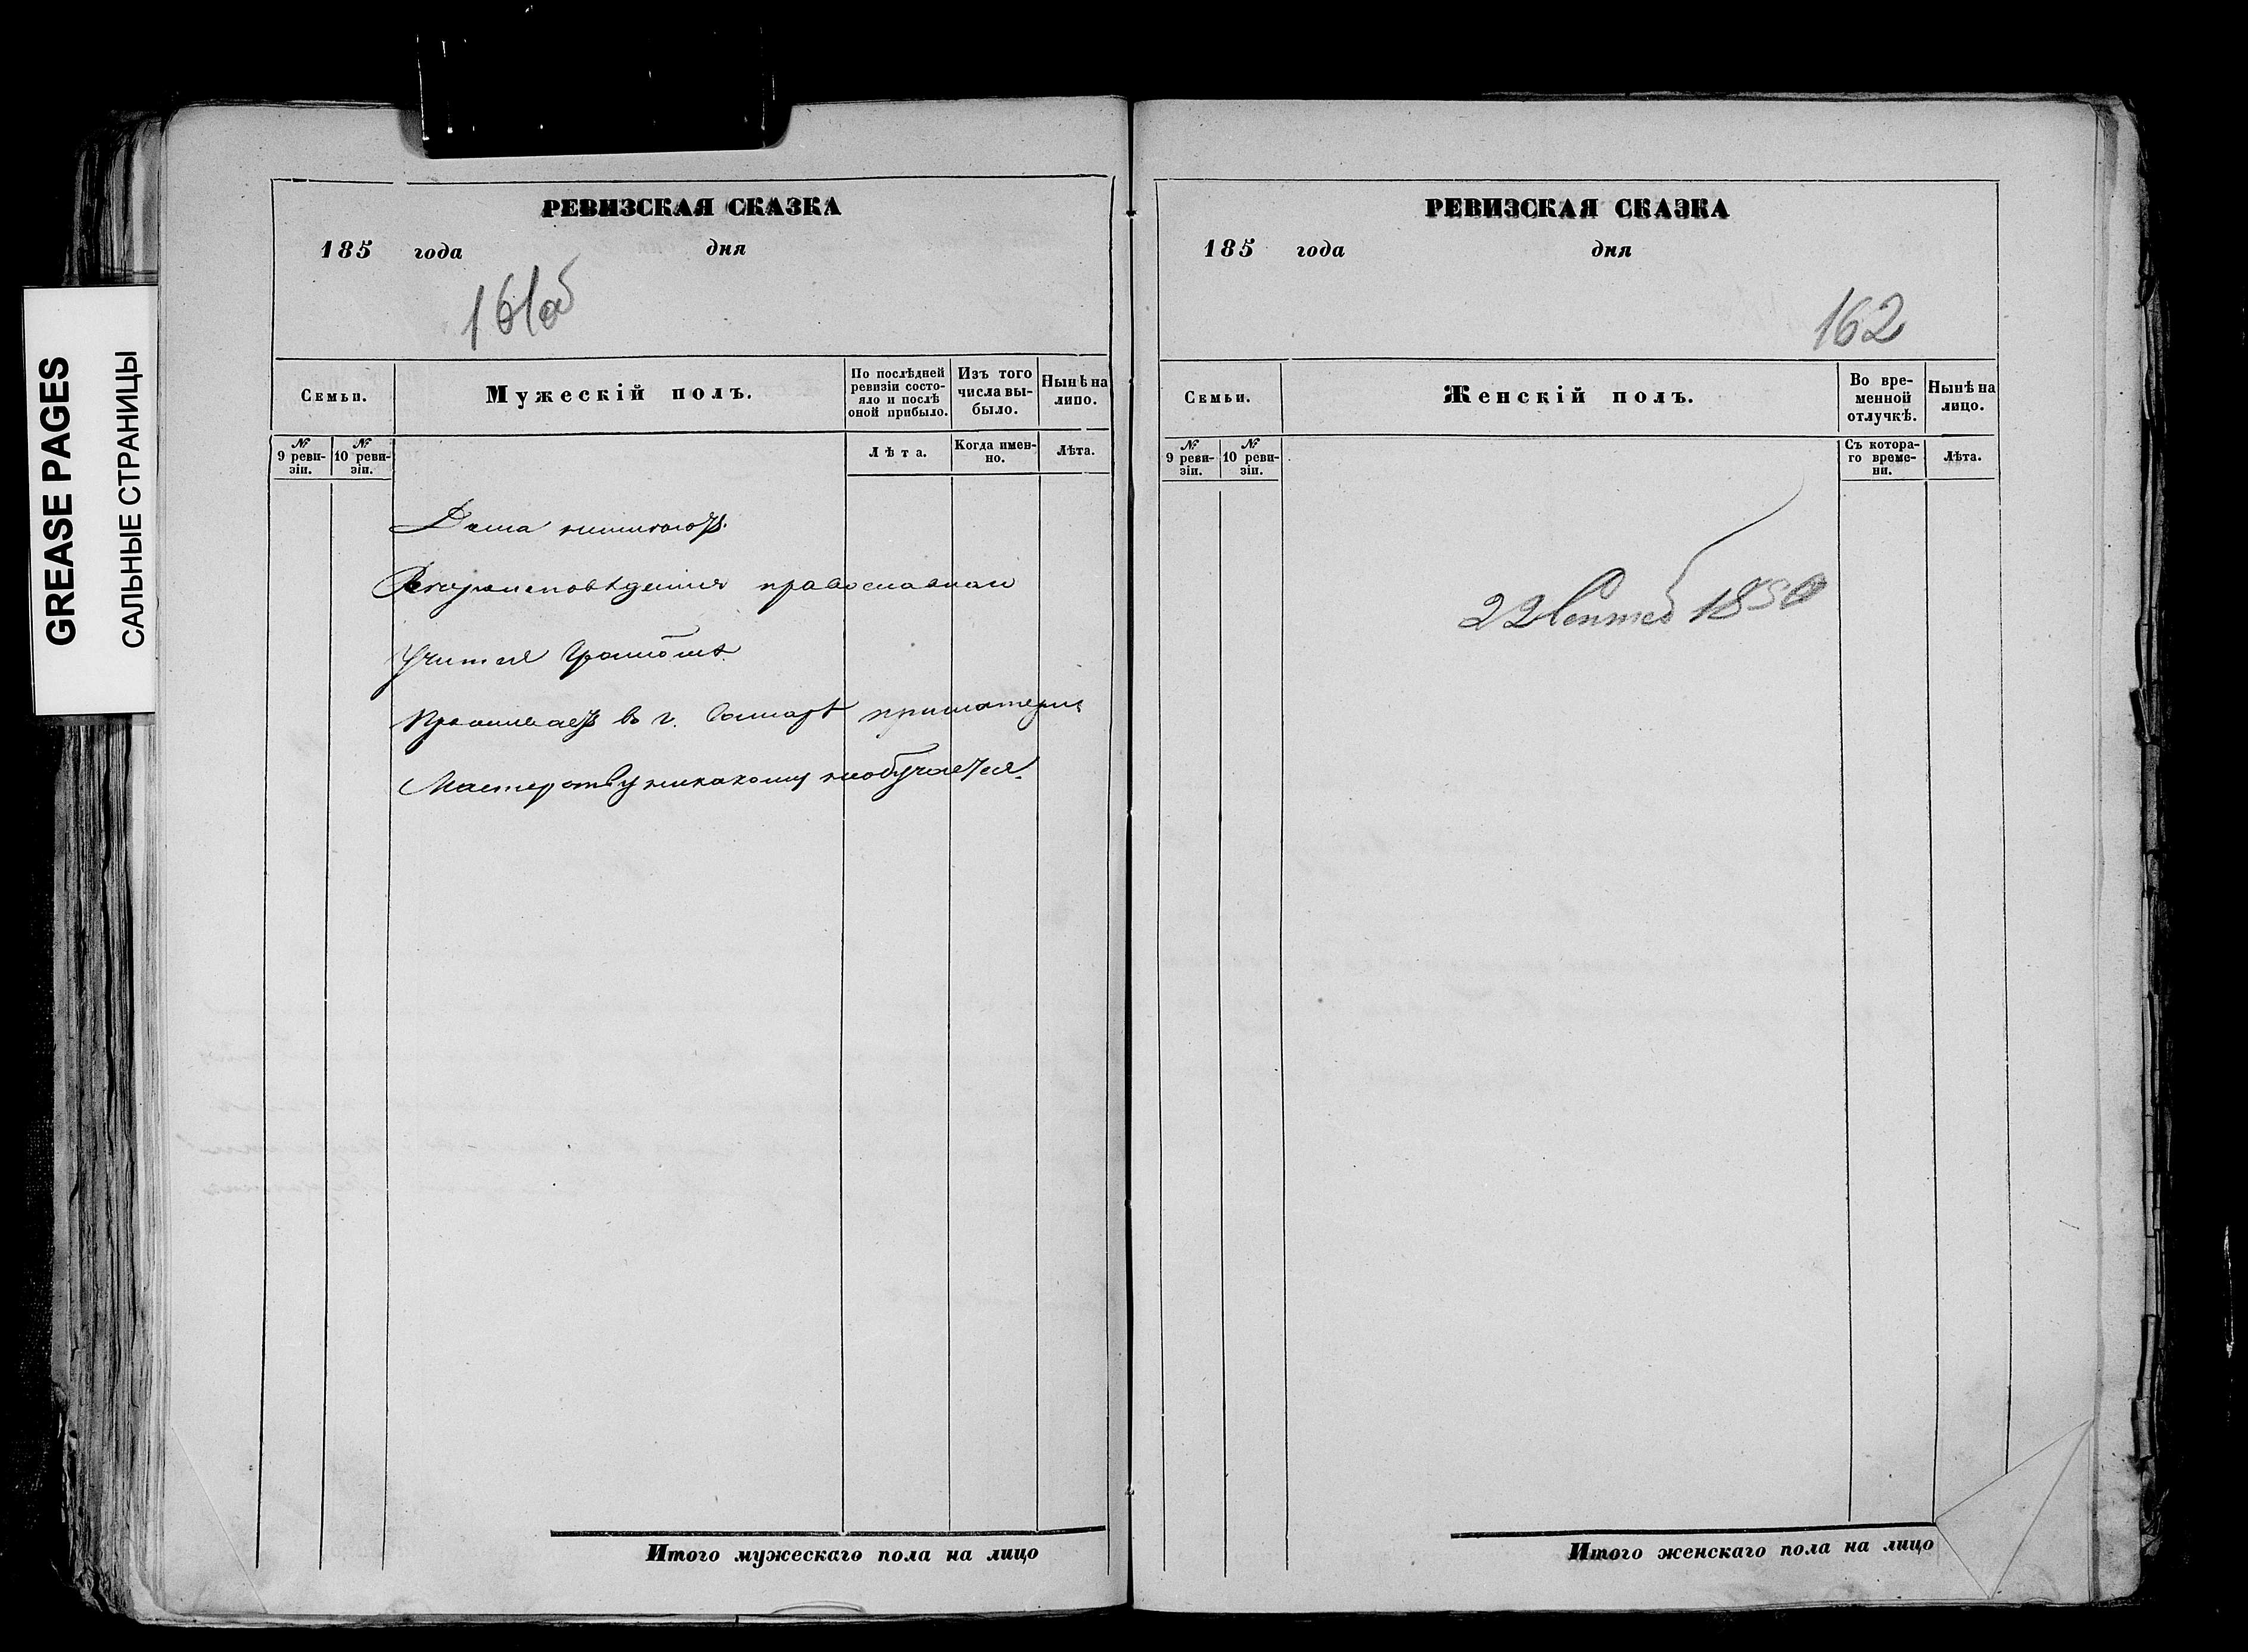 GREASE PAGES
САЛЬНЫЕ СТРАНИЦЫ
РЕВИЗСКАЯ СКАЗКА
185 года дня
161об
Семьи.
Мужескій полъ.
По послѣдней ревизіи состояло и послѣ оной прибыло.
Изъ того числа выбыло.
Нынѣ на лицо.
№ 9 ревизіи.
№ 10 ревизіи.
Лѣта.
Когда именно.
Лѣта.
Дома неимѣютъ.
Вѣроисповѣденія православнаго
Учится Грамотѣ.
Проживаетъ въ г. Самарѣ приматери
Мастерству никакому необучается.
Итого мужескаго пола на лицо
РЕВИЗСКАЯ СКАЗКА
185 года дня
162
Семьи.
Женскій полъ.
Во временной отлучкѣ.
Нынѣ на лицо.
№ 9 ревизіи.
№ 10 ревизіи.
Съ котораго времени.
Лѣта.
22 Сентяб 1850
Итого женскаго пола на лицо